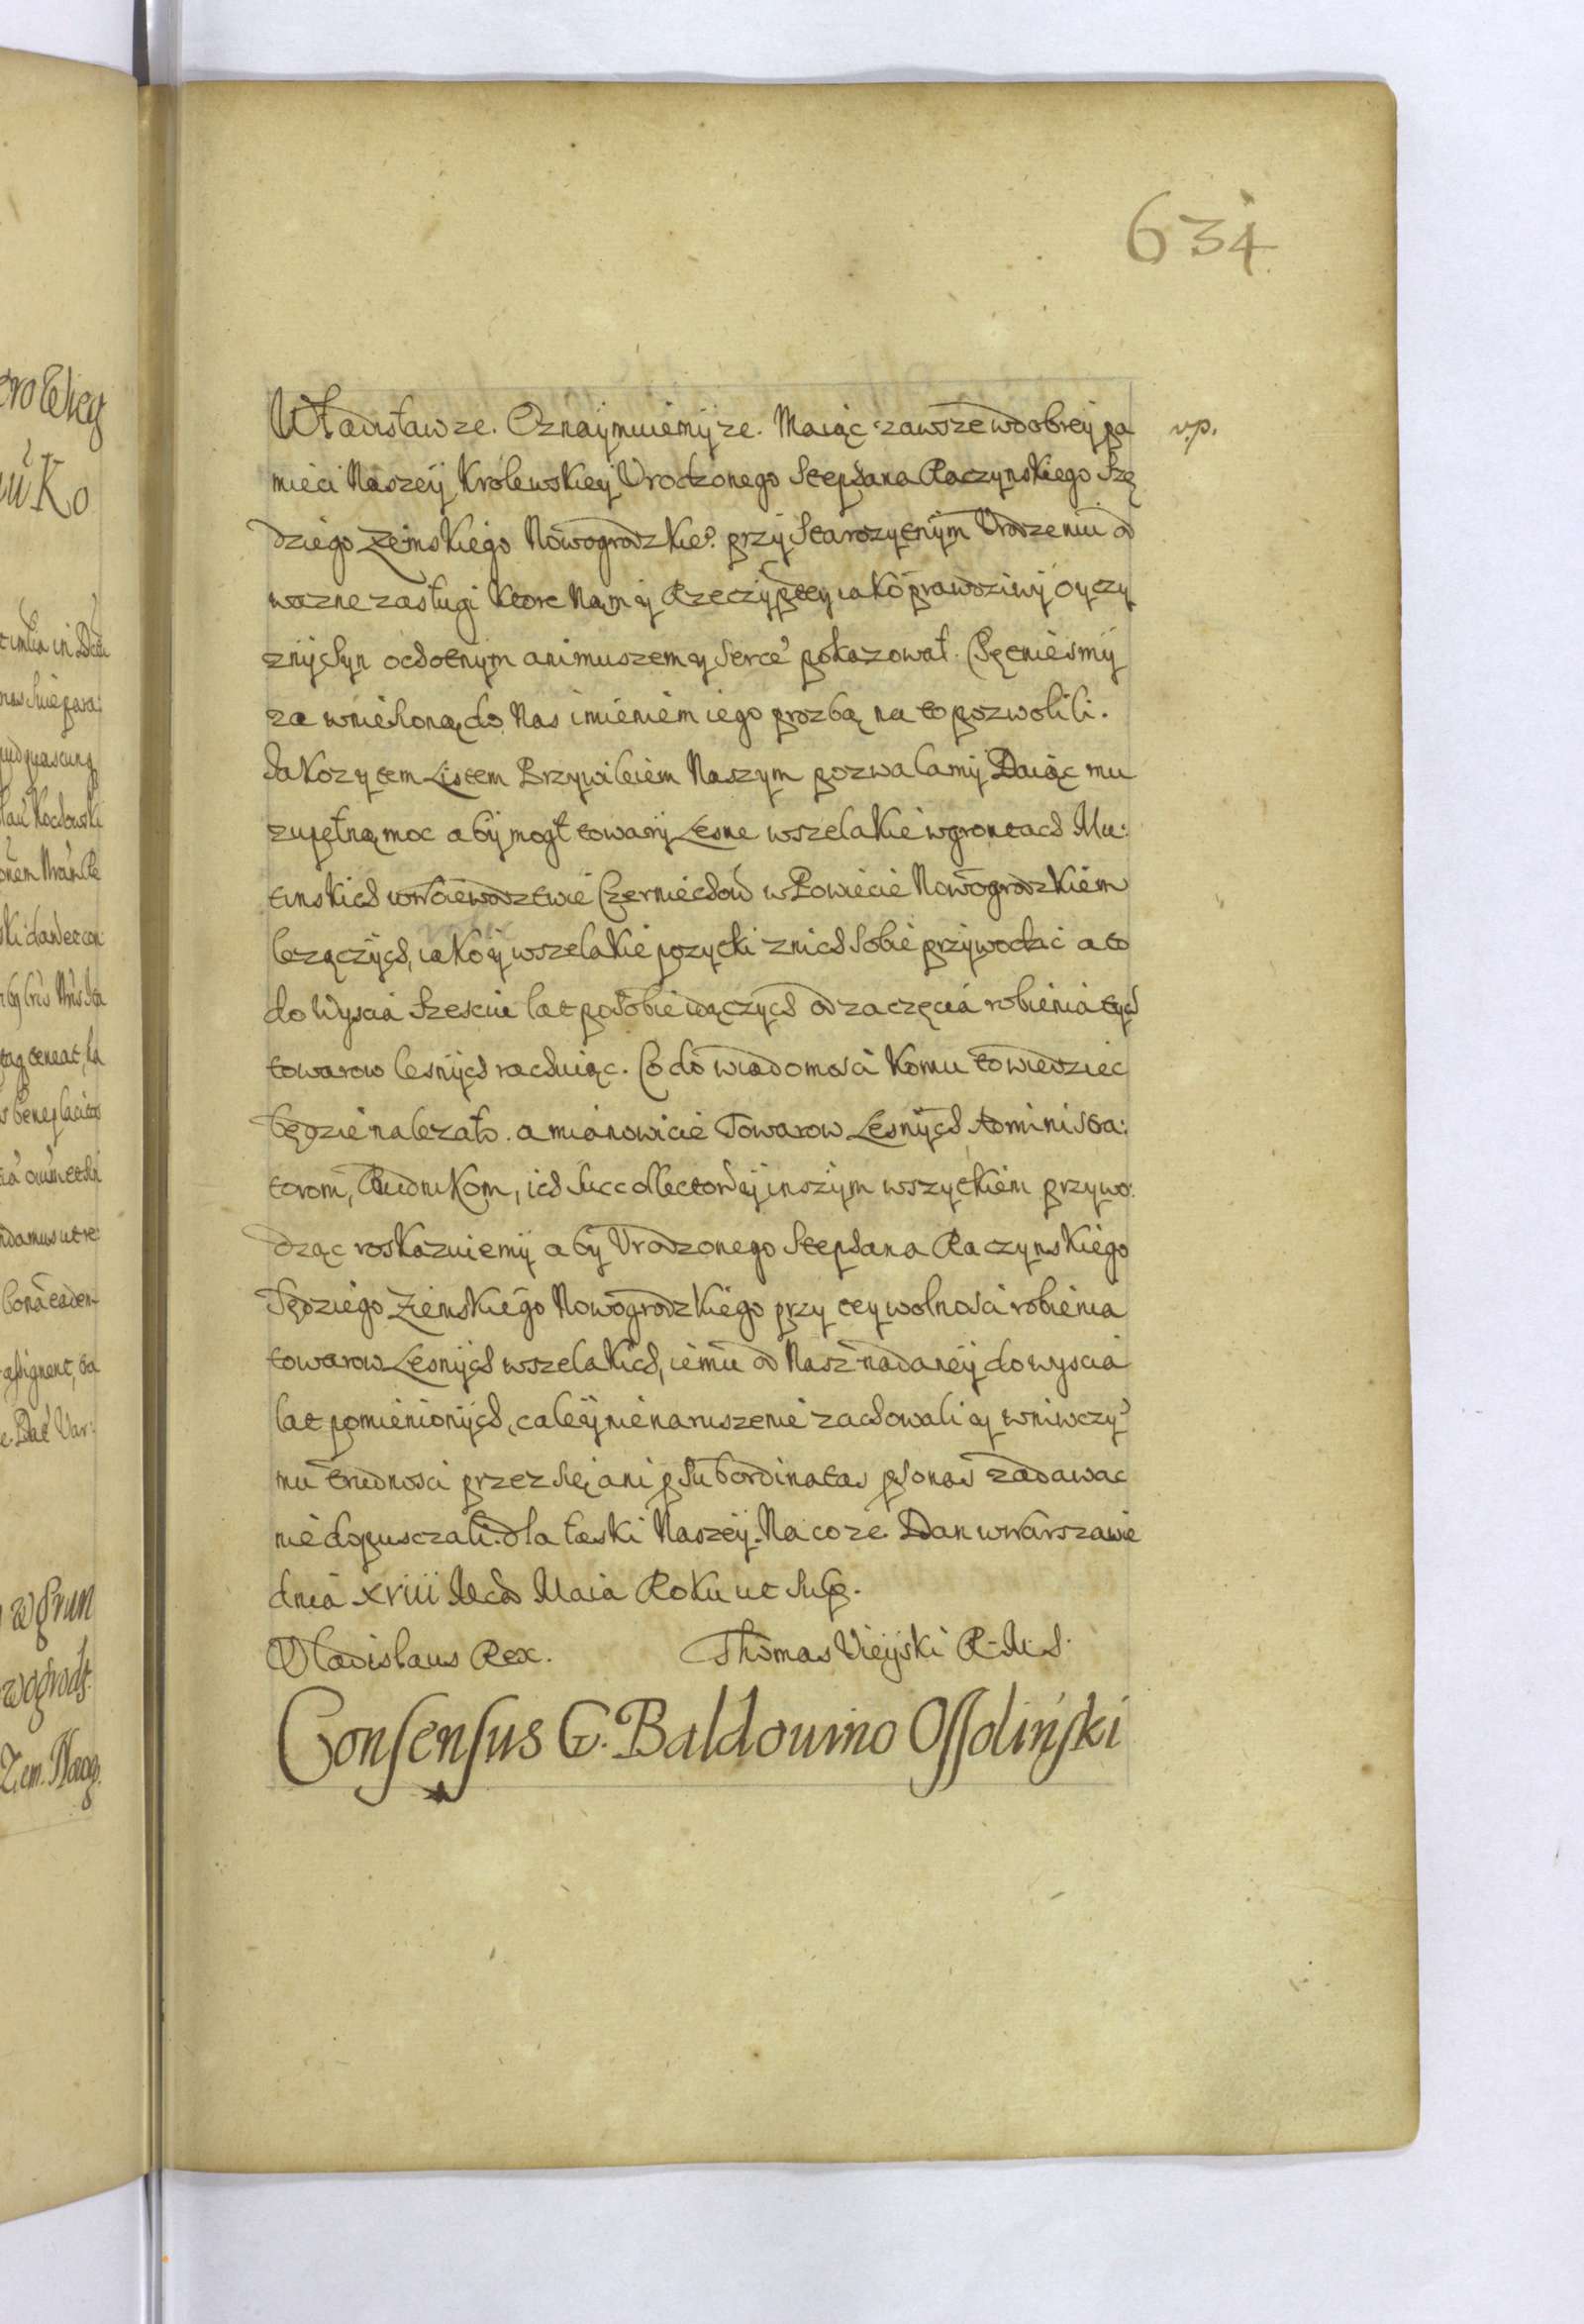 634
Władisław ze. Oznaÿmuiemÿ ze. Maiąc zawsze w dobreÿ pa v.p.
mięci Naszeÿ Krolewskieÿ Vrodzonego Stephana Raczynskiego Szę
dziego Zemskiego Nowogrodzkieo. przÿ Starozytnÿm Vrodzeniu od
wazne zasługi ktore Nam ÿ Rzeczÿptey iako prawdziwÿ oyczy
znÿ syn ochotnÿm animuszem ÿ serce pokazował. Chętniesmÿ
za wniesioną do Nas imieniem iego prozbą na to pozwolili.
Jakoz y tem Listem Przywileiem Naszym pozwalamÿ Daiąc mu
zupełną moc abÿ mogł towarÿ Lesne wszelakie w grontach Mu:
tinskich w Woiewodztwie Czerniechow w Powiecie Nowogrodzkiem
lezączÿch, iako ÿ wszelakie pozytki z nich sobie przÿwodzic a to
do Wyscia szesciu lat po sobie idączÿch od zaczęcia robienia tych
towarow lesnÿch rachuiąc. Co do wiadomosci komu to wiedziec
będzie nalezało. a mianowicie Towarow Lesnÿch Administra:
torom, Budnikom, ich Succollectorÿ inszÿm wszytkiem przywo:
dząc roskazuiemÿ abÿ Vrodzonego Stephana Raczynskiego
Sędziego Ziemskiego Nowogrodzkiego przy tey wolnosci robienia
towarow Lesnÿch wszelakich, iemu od Nasz nadaneÿ do wyscia
lat pomienionÿch, caleÿ nienaruszenie zachowali ÿ w niwczym
mu trudnosci przez się ani p subordinatas psonas zadawac
nie dopuszczali. dla łaski Naszeÿ. Na co ze. Dan w Warszawie
dnia XVIII Mca Maia Roku ut sup.
Vladislaus Rex. Thomas Vieÿski R. M. S.
Consensus G. Baldouino Ossolinski